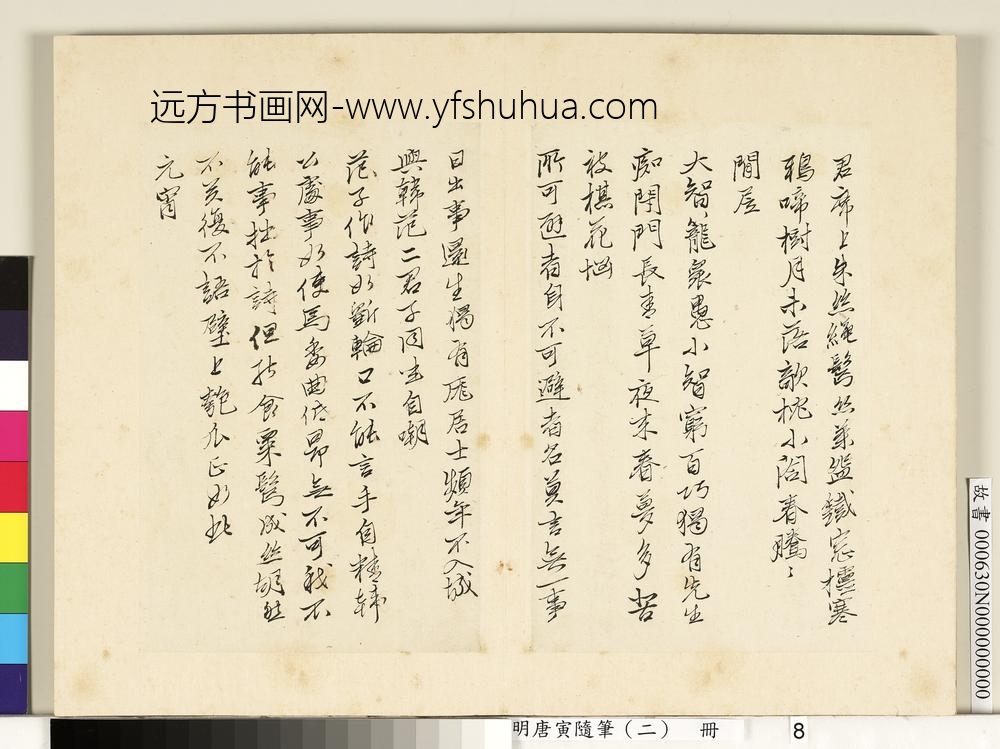 远方书画网-www.yfshuhua.com
君席上朱丝绳鬓丝
鴉啼樹月未落欹枕小閣春騰〻
閒居
大智龍象愚小智窮百巧獨有先生
痴閉門長春草夜來春夢多苦
被棋花惱
所可避者自不可避者名莫言無一事
日出事還生獨有居士頻年不入城
與韓范二君子同坐自嘲
范子作詩如斷輪口不能言手自精韓
公處事如使馬委曲低昂無不可我不
能事拙於詩但能食粟鬢成絲胡然
不笑復不語壁上匏瓜正如此
元宵
故書 000630N000000000
明唐寅隨筆（二） 冊 8